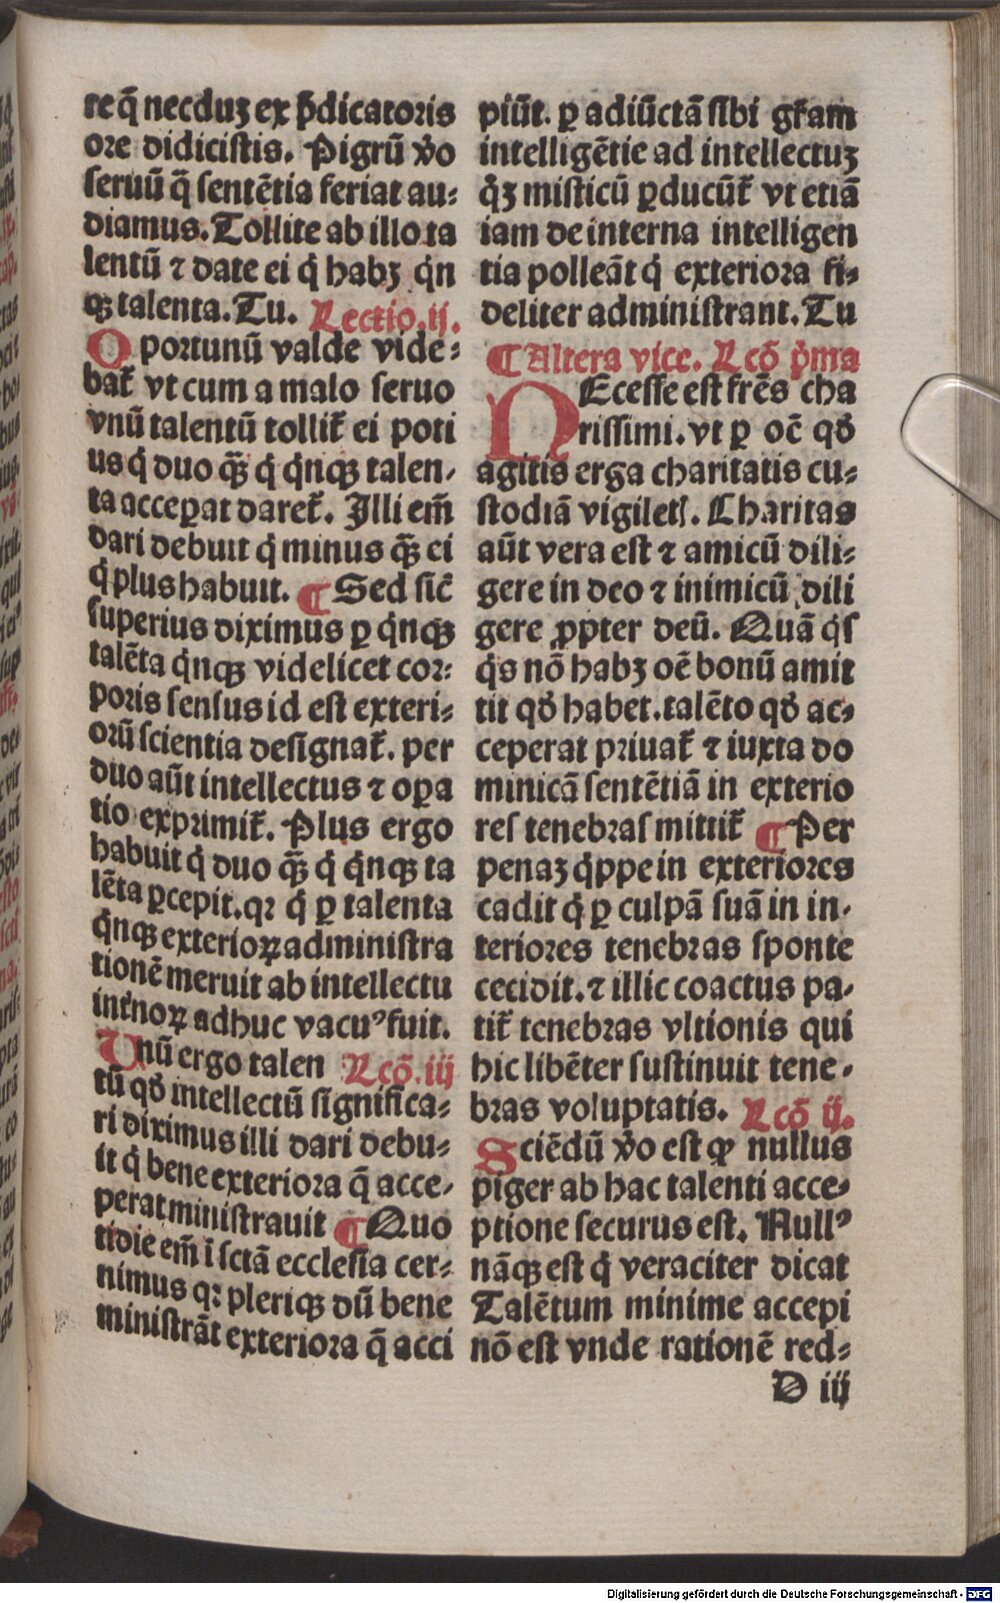 re q̄ necduʒ ex p̄dicatoris
ore didicistis. Pigrū v̄o
seruū q̄ sentētia feriat au⸗
diamus. Tollite ab illo ta
lentū ⁊ date ei q̇ habʒ q̇n
qꝫ talenta. Tu. Lectio .ij.
Oportunū valde vide⸗
bat᷑ vt cum a malo seruo
vnū talentū tollit᷑ ei poti
us q̇ duo qꝫ̄ q̇ q̇nqꝫ talen⸗
ta acceꝑat daret᷑. Illi em̄
dari debuit q̇ minus qꝫ̄ ei
q̇ plus habuit. ¶ Sed sic̄
superius diximus ꝑ q̇nqꝫ
talēta q̇nqꝫ videlicet cor⸗
poris sensus id est exteri⸗
orū scientia designat᷑. per
duo aūt intellectus ⁊ oꝑa
tio exprimit᷑. Plus ergo
habuit q̇ duo qꝫ̄ q̇ q̇nqꝫ ta
lēta ꝑcepit. qꝛ q̇ ꝑ talenta
q̇nqꝫ exterioꝝ administra
tionē meruit ab intellectu
int᷑noꝝ adhuc vacuꝰ fuit.
Vnū ergo talen Lcō. iij
tū qd̓ intellectū significa⸗
ri diximus illi dari debu⸗
it q̇ bene exteriora q̄ acce⸗
perat ministrauit ¶ Quo
tidie em̄ ī sctā ecclesia cer⸗
nimus qꝛ pleriqꝫ dū bene
ministrāt exteriora q̄ acci
piūt. ꝑ adiūctā sibi gr̄am
intelligētie ad intellectuʒ
q̇ʒ misticū ꝑducūt᷑ vt etiā
iam de interna intelligen
tia polleāt q̇ exteriora fi⸗
deliter administrant. Tu
¶ Altera vice. Lcō p̓ma
NEcesse est fr̄es cha
rissimi. vt ꝑ oē qd̓
agitis erga charitatis cu⸗
stodiā vigiletꝭ. Charitas
aūt vera est ⁊ amicū dili⸗
gere in deo ⁊ inimicū dili
gere ꝓpter deū. Quā q̇s
q̇s nō habʒ oē bonū amit
tit qd̓ habet. talēto qd̓ ac⸗
ceperat priuat᷑ ⁊ iuxta do
minicā sentētiā in exterio
res tenebras mittit᷑ ¶ Per
penaʒ q̇ppe in exteriores
cadit q̇ ꝑ culpā suā in in⸗
teriores tenebras sponte
cecidit. ⁊ illic coactus pa⸗
tit᷑ tenebras vltionis qui
hic libēter sustinuit tene⸗
bras voluptatis. Lcō ij.
Sciēdū v̄o est ꝙ nullus
piger ab hac talenti acce⸗
ptione securus est. Nullꝰ
nāqꝫ est q̇ veraciter dicat
Talētum minime accepi
nō est vnde rationē red⸗
D iij
Digitalisierung gefördert durch die Deutsche Forschungsgemeinschaft - DFG